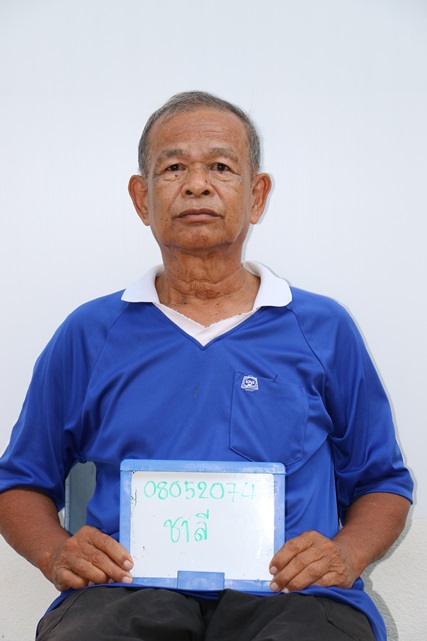 08052074
ชาลี